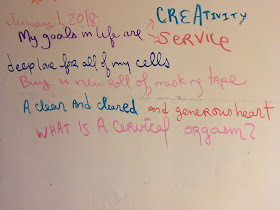 January 1, 2018;
CREAtivity
My goals in life are
SERVICE
deep love for all of my cells
Buy a new roll of masking tape
A clear And cleared and generous heart
WHAT IS A CERVICAL ORGASM?